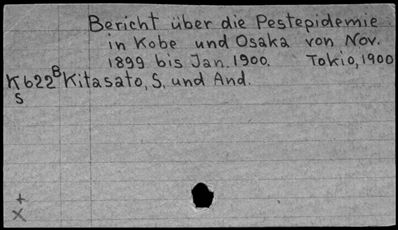 Bericht über die Pestepidemie
in Kobe und Osaka von Nov.
1899 bis Jan. 1900. Tokio, 1900
K622B Kitasato, S. und And.
S
+
X